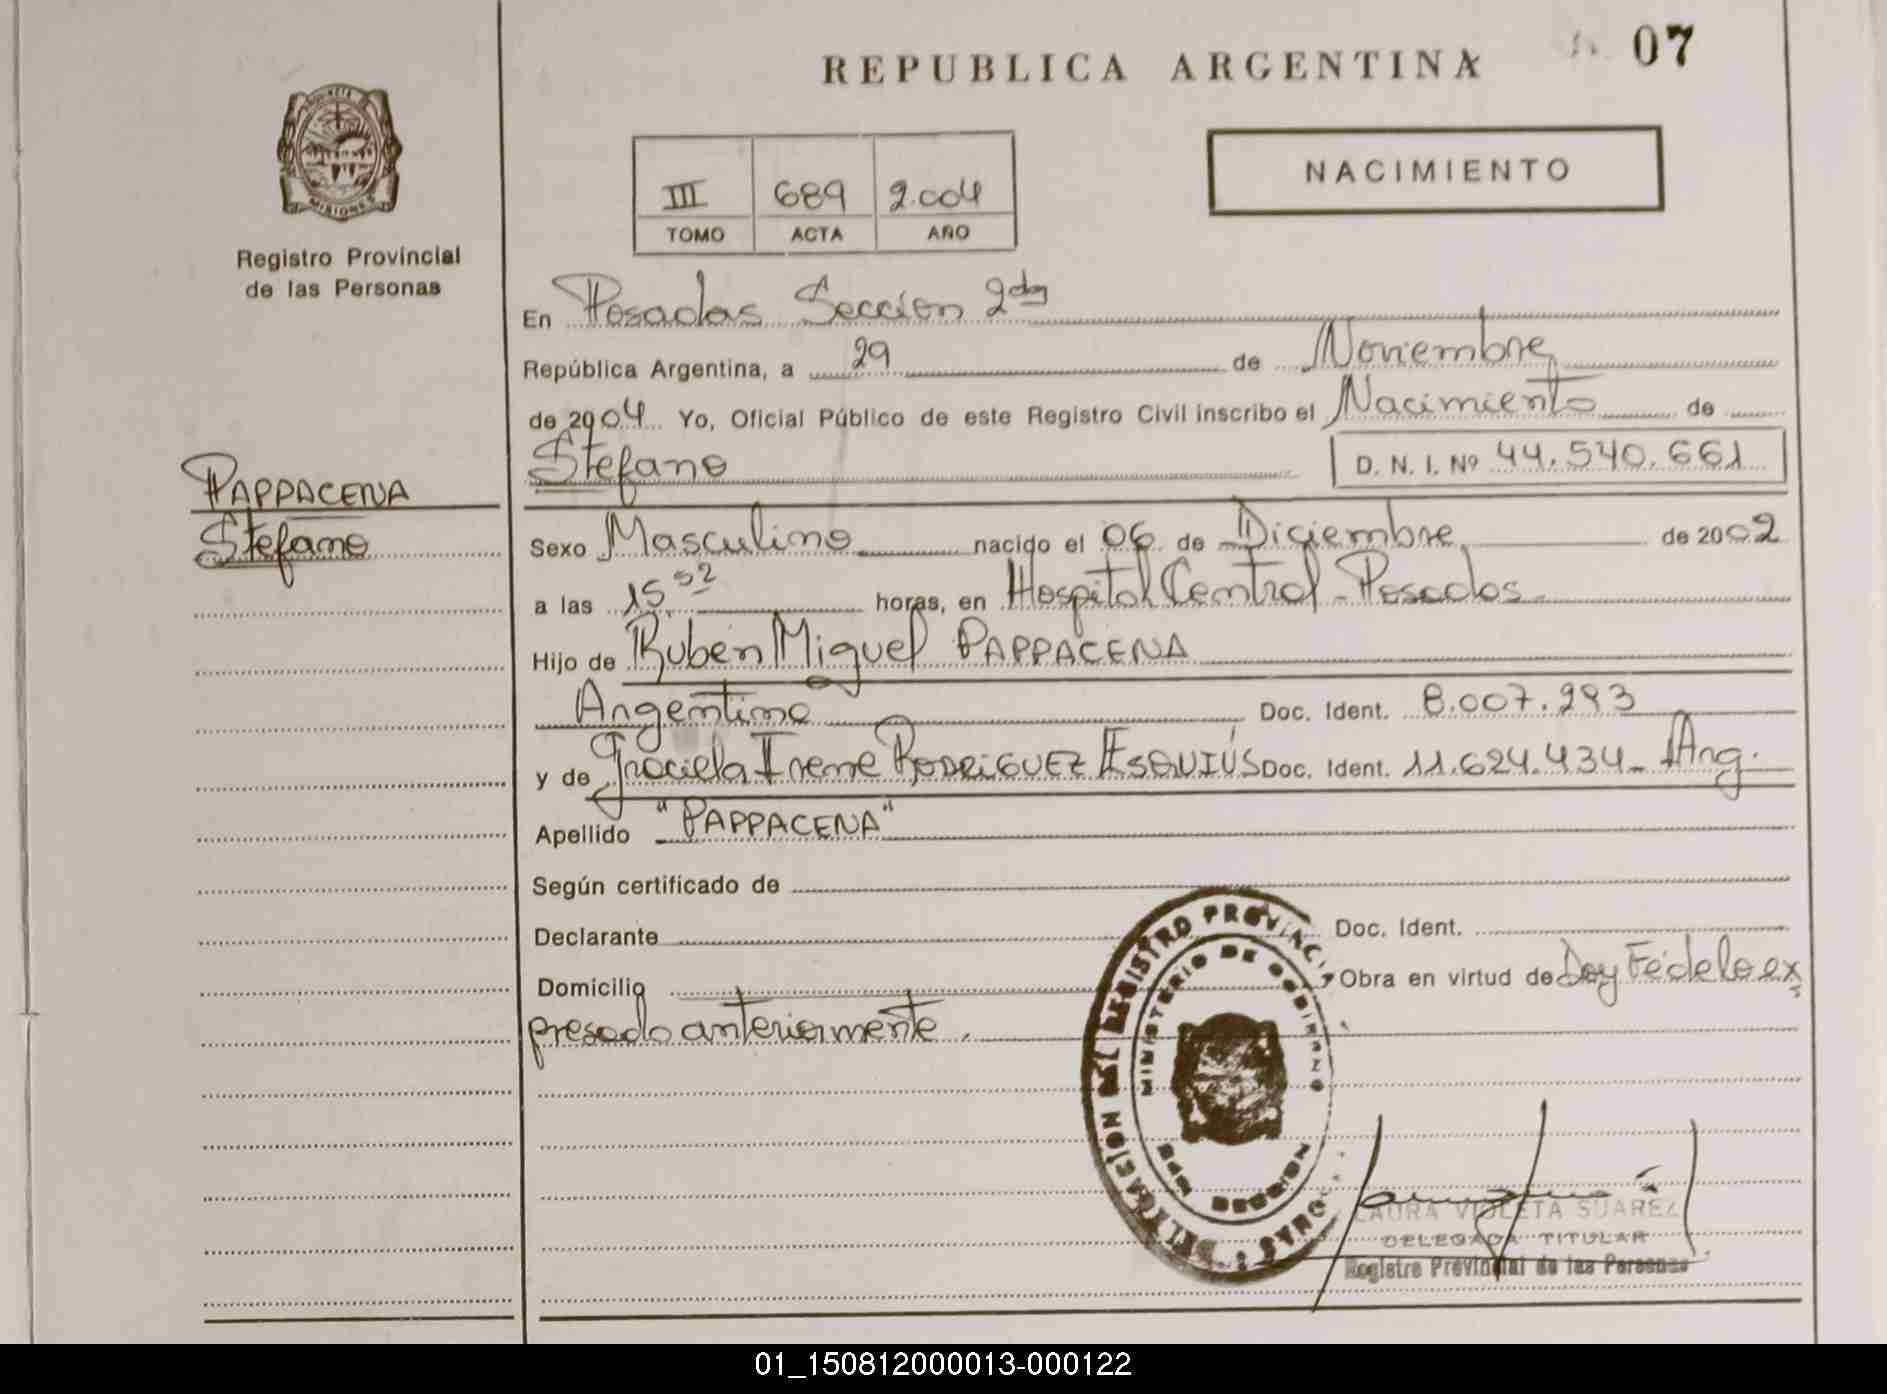 REPUBLICA ARGENTINA
07
PROVINCIA
MISIONES
Registro Provincial
de las Personas
III 689 2.004
TOMO ACTA AÑO
NACIMIENTO
En Posadas Sección 2da
República Argentina, a 29 de Noviembre
de 2004 Yo, Oficial Público de este Registro Civil inscribo el Nacimiento de
Stefano D. N. I. Nº 44.540.661
PAPPACENA
Stefano
Sexo Masculino nacido el 06 de Diciembre de 2002
a las 15 52 horas, en Hospital Central - Posadas -
Hijo de Rubén Miguel PAPPACENA
Argentino Doc. Ident. 8.007.293
y de Graciela Irene RODRIGUEZ ESQUIÚS Doc. Ident. 11.624.434 - Arg.
Apellido "PAPPACENA"
Según certificado de
Declarante Doc. Ident.
Domicilio Obra en virtud de Doy Fé de lo ex
presado anteriormente.
DELEGACION DEL REGISTRO PROVINCIAL
MINISTERIO DE GOBIERNO
LAURA VIOLETA SUAREZ
DELEGADA TITULAR
Registro Provincial de las Personas
01_150812000013-000122